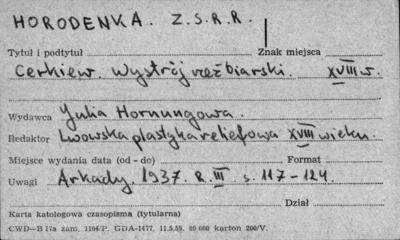 HORODENKA. Z.S.R.R.
Tytuł i podtytuł Znak miejsca
Cerkiew. Wystrój rzeźbiarski. XVIII w.
Wydawca Julia Hornungowa.
Redaktor Lwowska plastyka reliefowa XVIII wieku.
Miejsce wydania data (od - do) Format
Uwagi Arkady. 1937. R. III s. 117-124.
Dział
Karta katologowa czasopisma (tytularna)
CWD—B 17a zam. 1104/P. GDA-1477. 11.5.59. 80 000 karton 200/V.